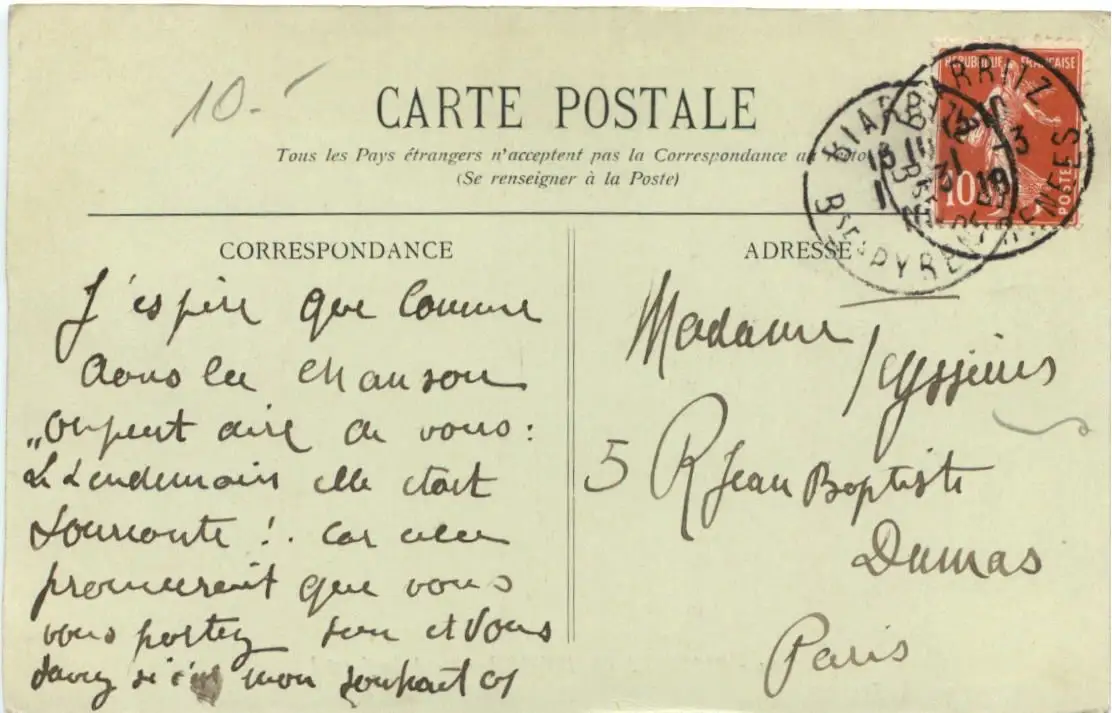 10.-
CARTE POSTALE
Tous les Pays étrangers n'acceptent pas la Correspondance au
(Se renseigner à la Poste)
REPUBLIQUE FRANÇAISE
10
POSTES
BIARRITZ
BIARRITZ
Bses PYRENEES
CORRESPONDANCE
J'espère que comme
dans la chanson
„on peut dire de vous :
Le Lendemain elle était
souriante !. Car cela
prouverait que vous
vous portez bien et vous
savez si c'est mon souhait
ADRESSE
Madame
5 R Jean Baptiste
Dumas
Paris